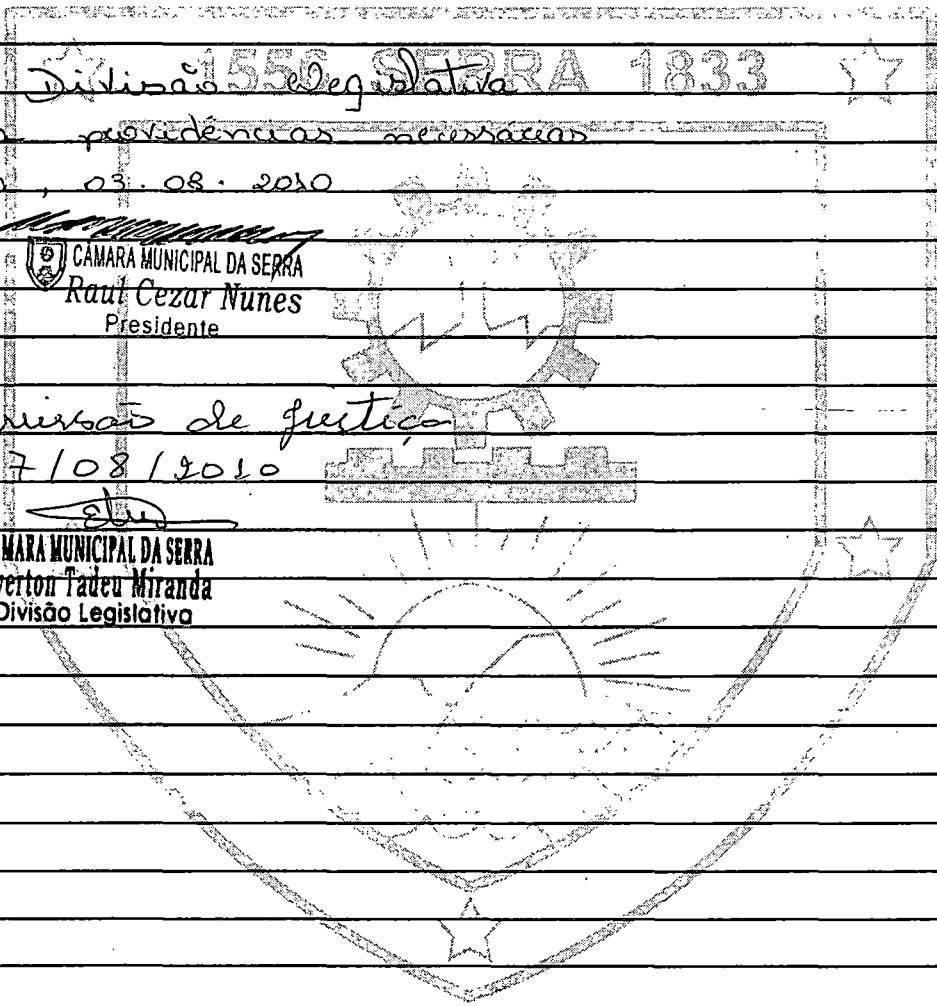 1556 SERRA 1833
Divisão Legislativa
providências necessárias
, 03.08.2010
CÂMARA MUNICIPAL DA SERRA
Raul Cezar Nunes
Presidente
missão de Justiça
7/08/2010
MARA MUNICIPAL DA SERRA
verton Tadeu Miranda
Divisão Legislativa